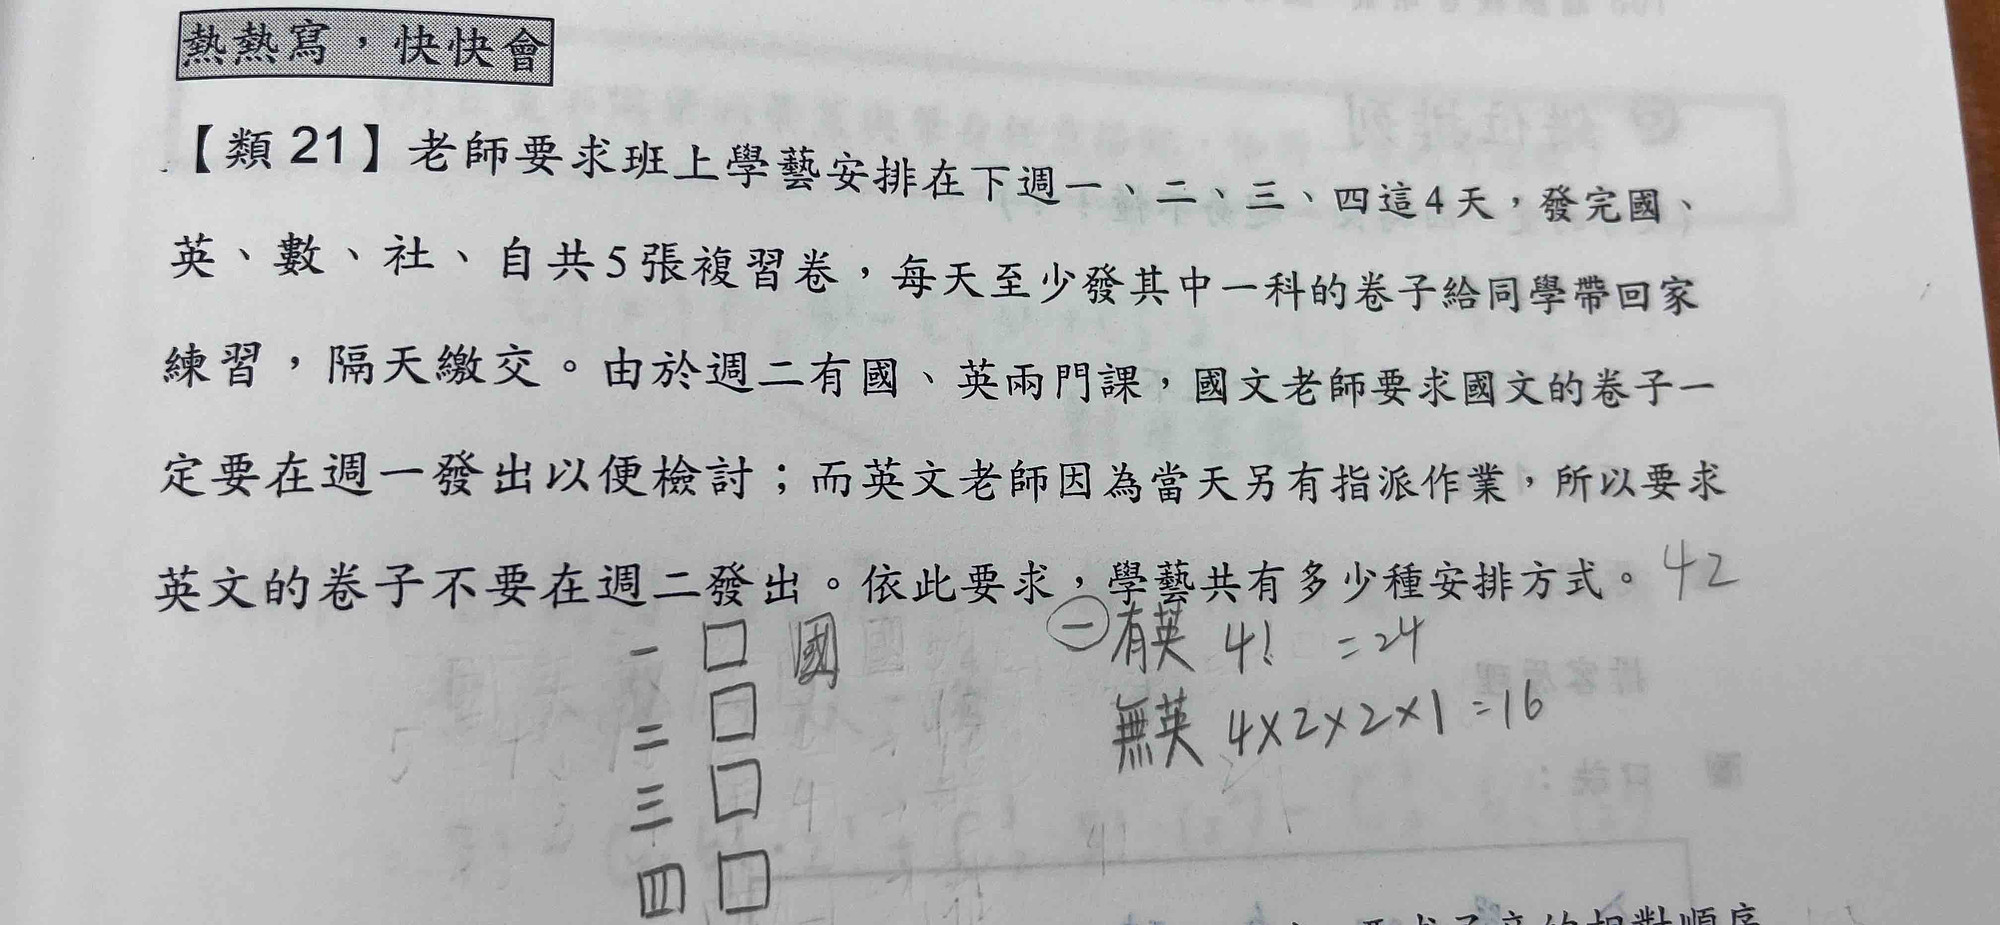 熱熱寫,快快會
【類 21】老師要求班上學藝安排在下週一、二、三、四這4天,發完國、
英、數、社、自共5張複習卷,每天至少發其中一科的卷子給同學帶回家
練習,隔天繳交。由於週二有國、英兩門課,國文老師要求國文的卷子一
定要在週一發出以便檢討;而英文老師因為當天另有指派作業,所以要求
英文的卷子不要在週二發出。依此要求,學藝共有多少種安排方式。42
一 □ 國
二 □
三 □
四 □
㊀有英 4! =24
無英 4×2×2×1=16
的相對順序